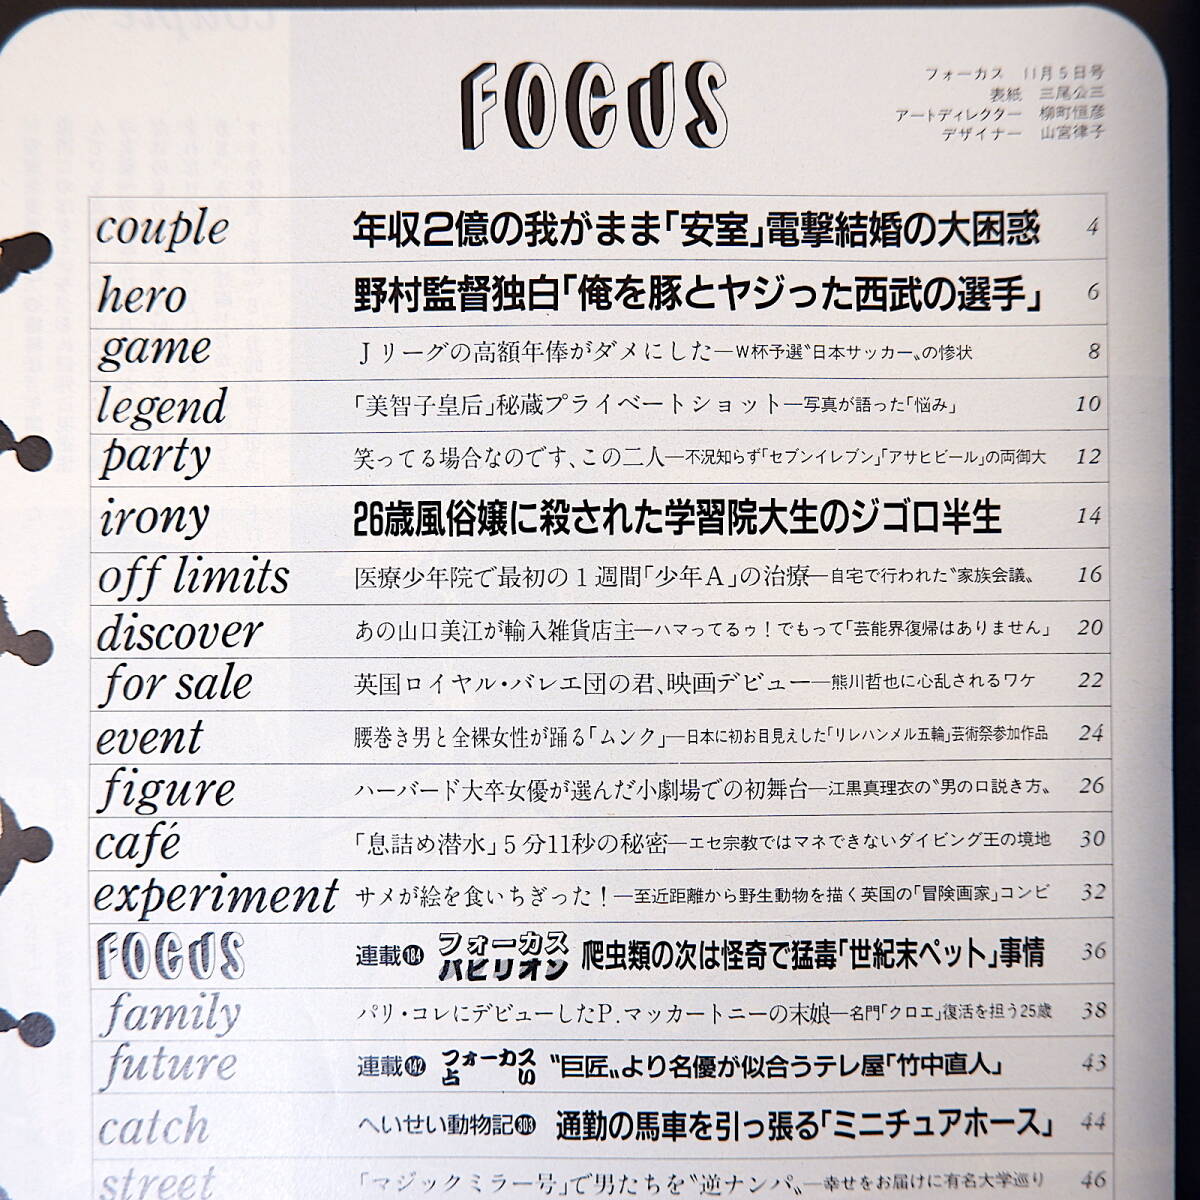 FOCUS
フォーカス 11月5日号
表紙 三尾公三
アートディレクター 柳町恒彦
デザイナー 山宮律子
couple 年収2億の我がまま「安室」電撃結婚の大困惑 4
hero 野村監督独白「俺を豚とヤジった西武の選手」 6
game Jリーグの高額年俸がダメにした—W杯予選〝日本サッカー〟の惨状 8
legend 「美智子皇后」秘蔵プライベートショット—写真が語った「悩み」 10
party 笑ってる場合なのです、この二人—不況知らず「セブンイレブン」「アサヒビール」の両御大 12
irony 26歳風俗嬢に殺された学習院大生のジゴロ半生 14
off limits 医療少年院で最初の1週間「少年A」の治療—自宅で行われた〝家族会議〟 16
discover あの山口美江が輸入雑貨店主—ハマってるゥ！でもって「芸能界復帰はありません」 20
for sale 英国ロイヤル・バレエ団の君、映画デビュー—熊川哲也に心乱されるワケ 22
event 腰巻き男と全裸女性が踊る「ムンク」—日本に初お目見えした「リレハンメル五輪」芸術祭参加作品 24
figure ハーバード大卒女優が選んだ小劇場での初舞台—江黒真理衣の〝男の口説き方〟 26
café 「息詰め潜水」5分11秒の秘密—エセ宗教ではマネできないダイビング王の境地 30
experiment サメが絵を食いちぎった！—至近距離から野生動物を描く英国の「冒険画家」コンビ 32
FOCUS 連載184 フォーカスパビリオン 爬虫類の次は怪奇で猛毒「世紀末ペット」事情 36
family パリ・コレにデビューしたP.マッカートニーの末娘—名門「クロエ」復活を担う25歳 38
future 連載142 フォーカス占い 〝巨匠〟より名優が似合うテレ屋「竹中直人」 43
catch へいせい動物記303 通勤の馬車を引っ張る「ミニチュアホース」 44
street 「マジックミラー号」で男たちを〝逆ナンパ〟—幸せをお届けに有名大学巡り 46